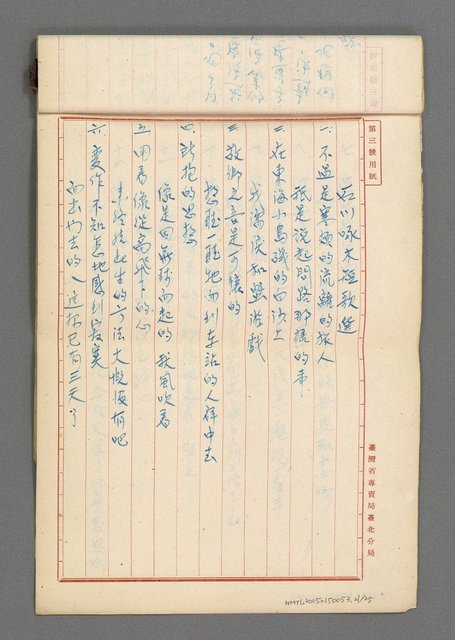 第三號用紙
石川啄木短歌選
一、不過是寒酸的流離的旅人
祇是說起問路那樣的事
二、在東海小島磯的白沙上
我濡淚和蟹遊戲
三、故鄉之音是可懷的
想聽一聽牠而到車站的人群中去
四、談抱的思想
像是因
而起的 我風吹着
五、用着像從高飛下的心
来終結此生的方法大概沒有吧
六、變作不知怎地感到寂寞
而出去的人這樣已有三天了
臺灣省專賣局臺北分局
NMTL20050150053, 21/25